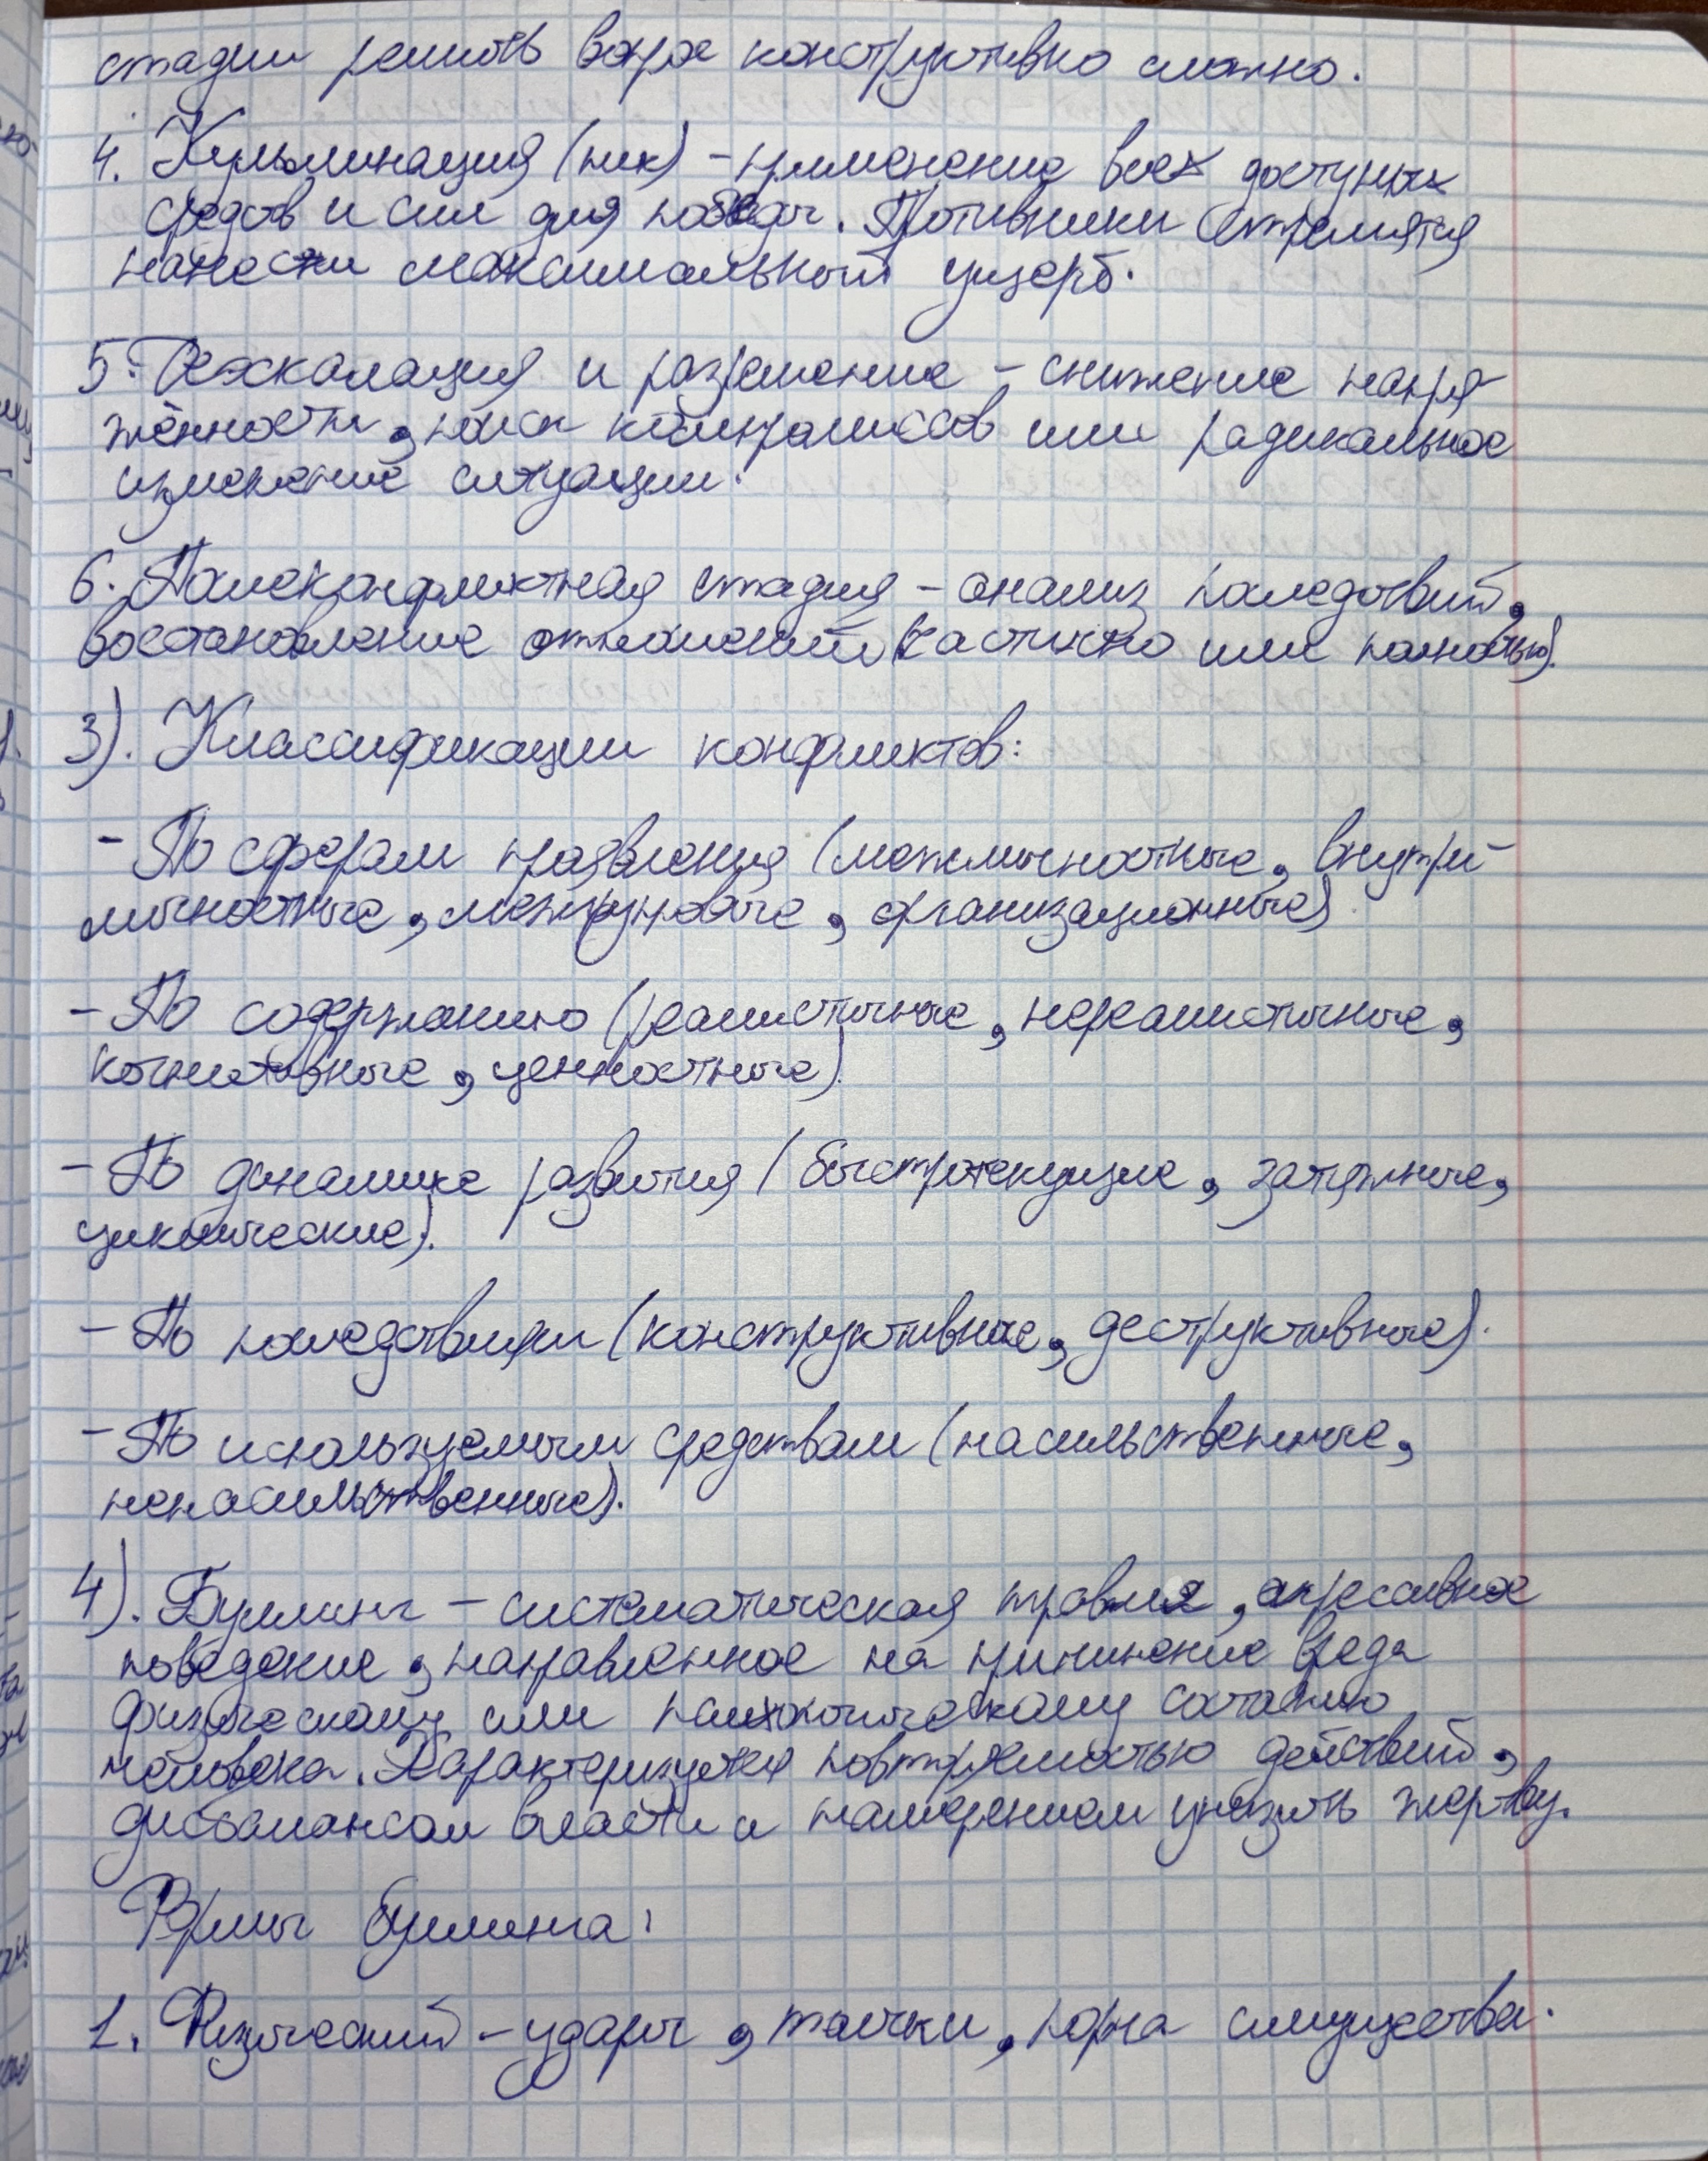 стадии решить вопрос конструктивно сложно.
4. Кульминация (пик) – применение всех доступных
средств и сил для победы. Противники стремятся
нанести максимальный ущерб.
5. Деэскалация и разрешение – снижение напря-
жённости, поиск компромиссов или радикальное
изменение ситуации.
6. Послеконфликтная стадия – анализ последствий,
восстановление отношений (частично или полностью).
3). Классификации конфликтов:
- По сферам проявления (межличностные, внутри-
личностные, межгрупповые, организационные)
- По содержанию (реалистичные, нереалистичные,
когнитивные, ценностные).
- По динамике развития (быстротекущие, затяжные,
циклические).
- По последствиям (конструктивные, деструктивные).
- По используемым средствам (насильственные,
ненасильственные).
4). Буллинг – систематическая травля, агрессивное
поведение, направленное на причинение вреда
физическому или психологическому состоянию
человека. Характеризуется повторяемостью действий,
дисбалансом власти и намерением унизить жертву.
Формы буллинга:
1. Физический – удары, толчки, порча имущества.